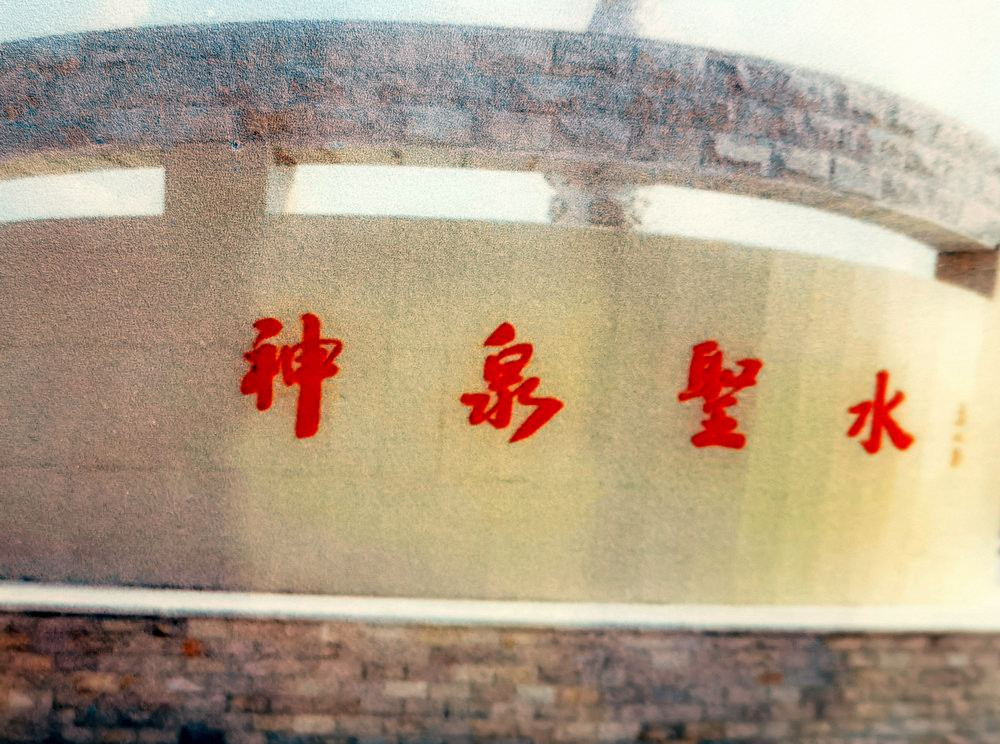 神泉聖水